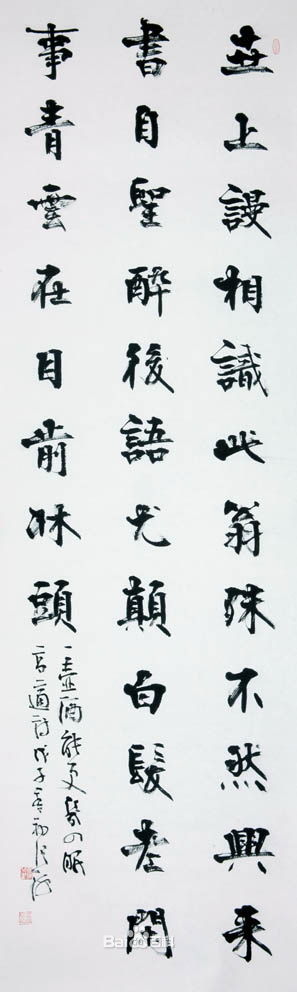 世上謾相識此翁殊不然興来
書自聖醉後語尤顛白髮老閒
事青雲在目前牀頭
一壺酒能更幾回眠
高適詩戊子春初
Bai百科